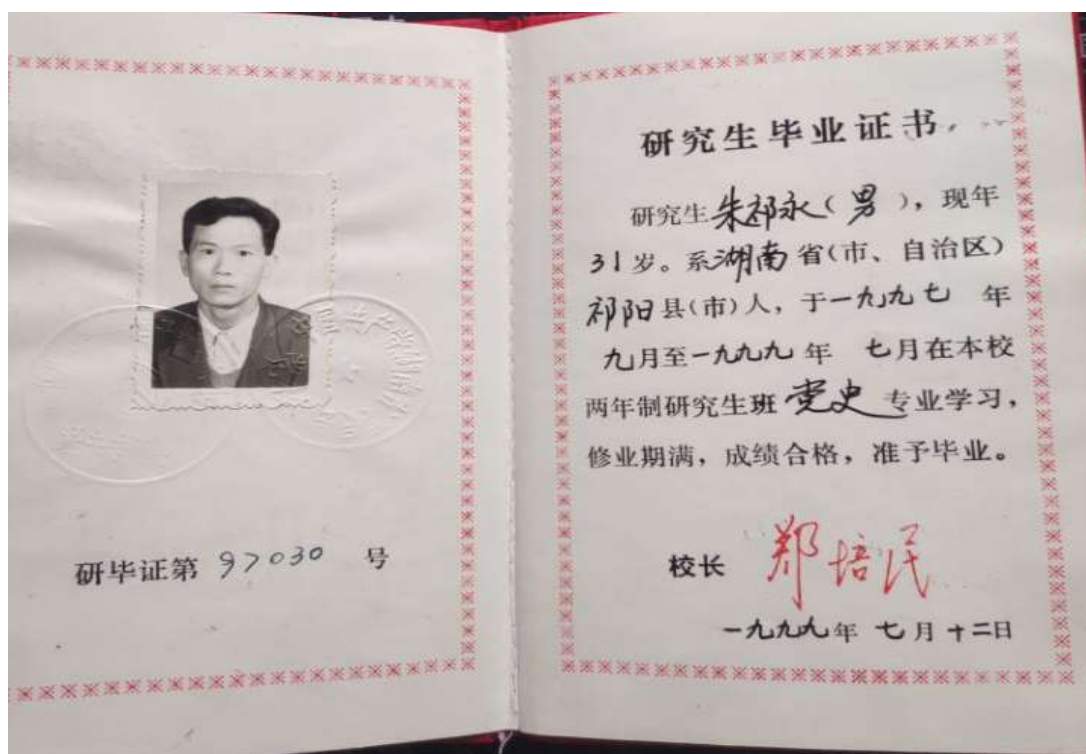 研毕证第 97030 号
研究生毕业证书
研究生朱祁永（男），现年
31岁。系湖南省（市、自治区）
祁阳县（市）人，于一九九七年
九月至一九九九年七月在本校
两年制研究生班党史专业学习，
修业期满，成绩合格，准予毕业。
校长 郑培民
一九九九年七月十二日